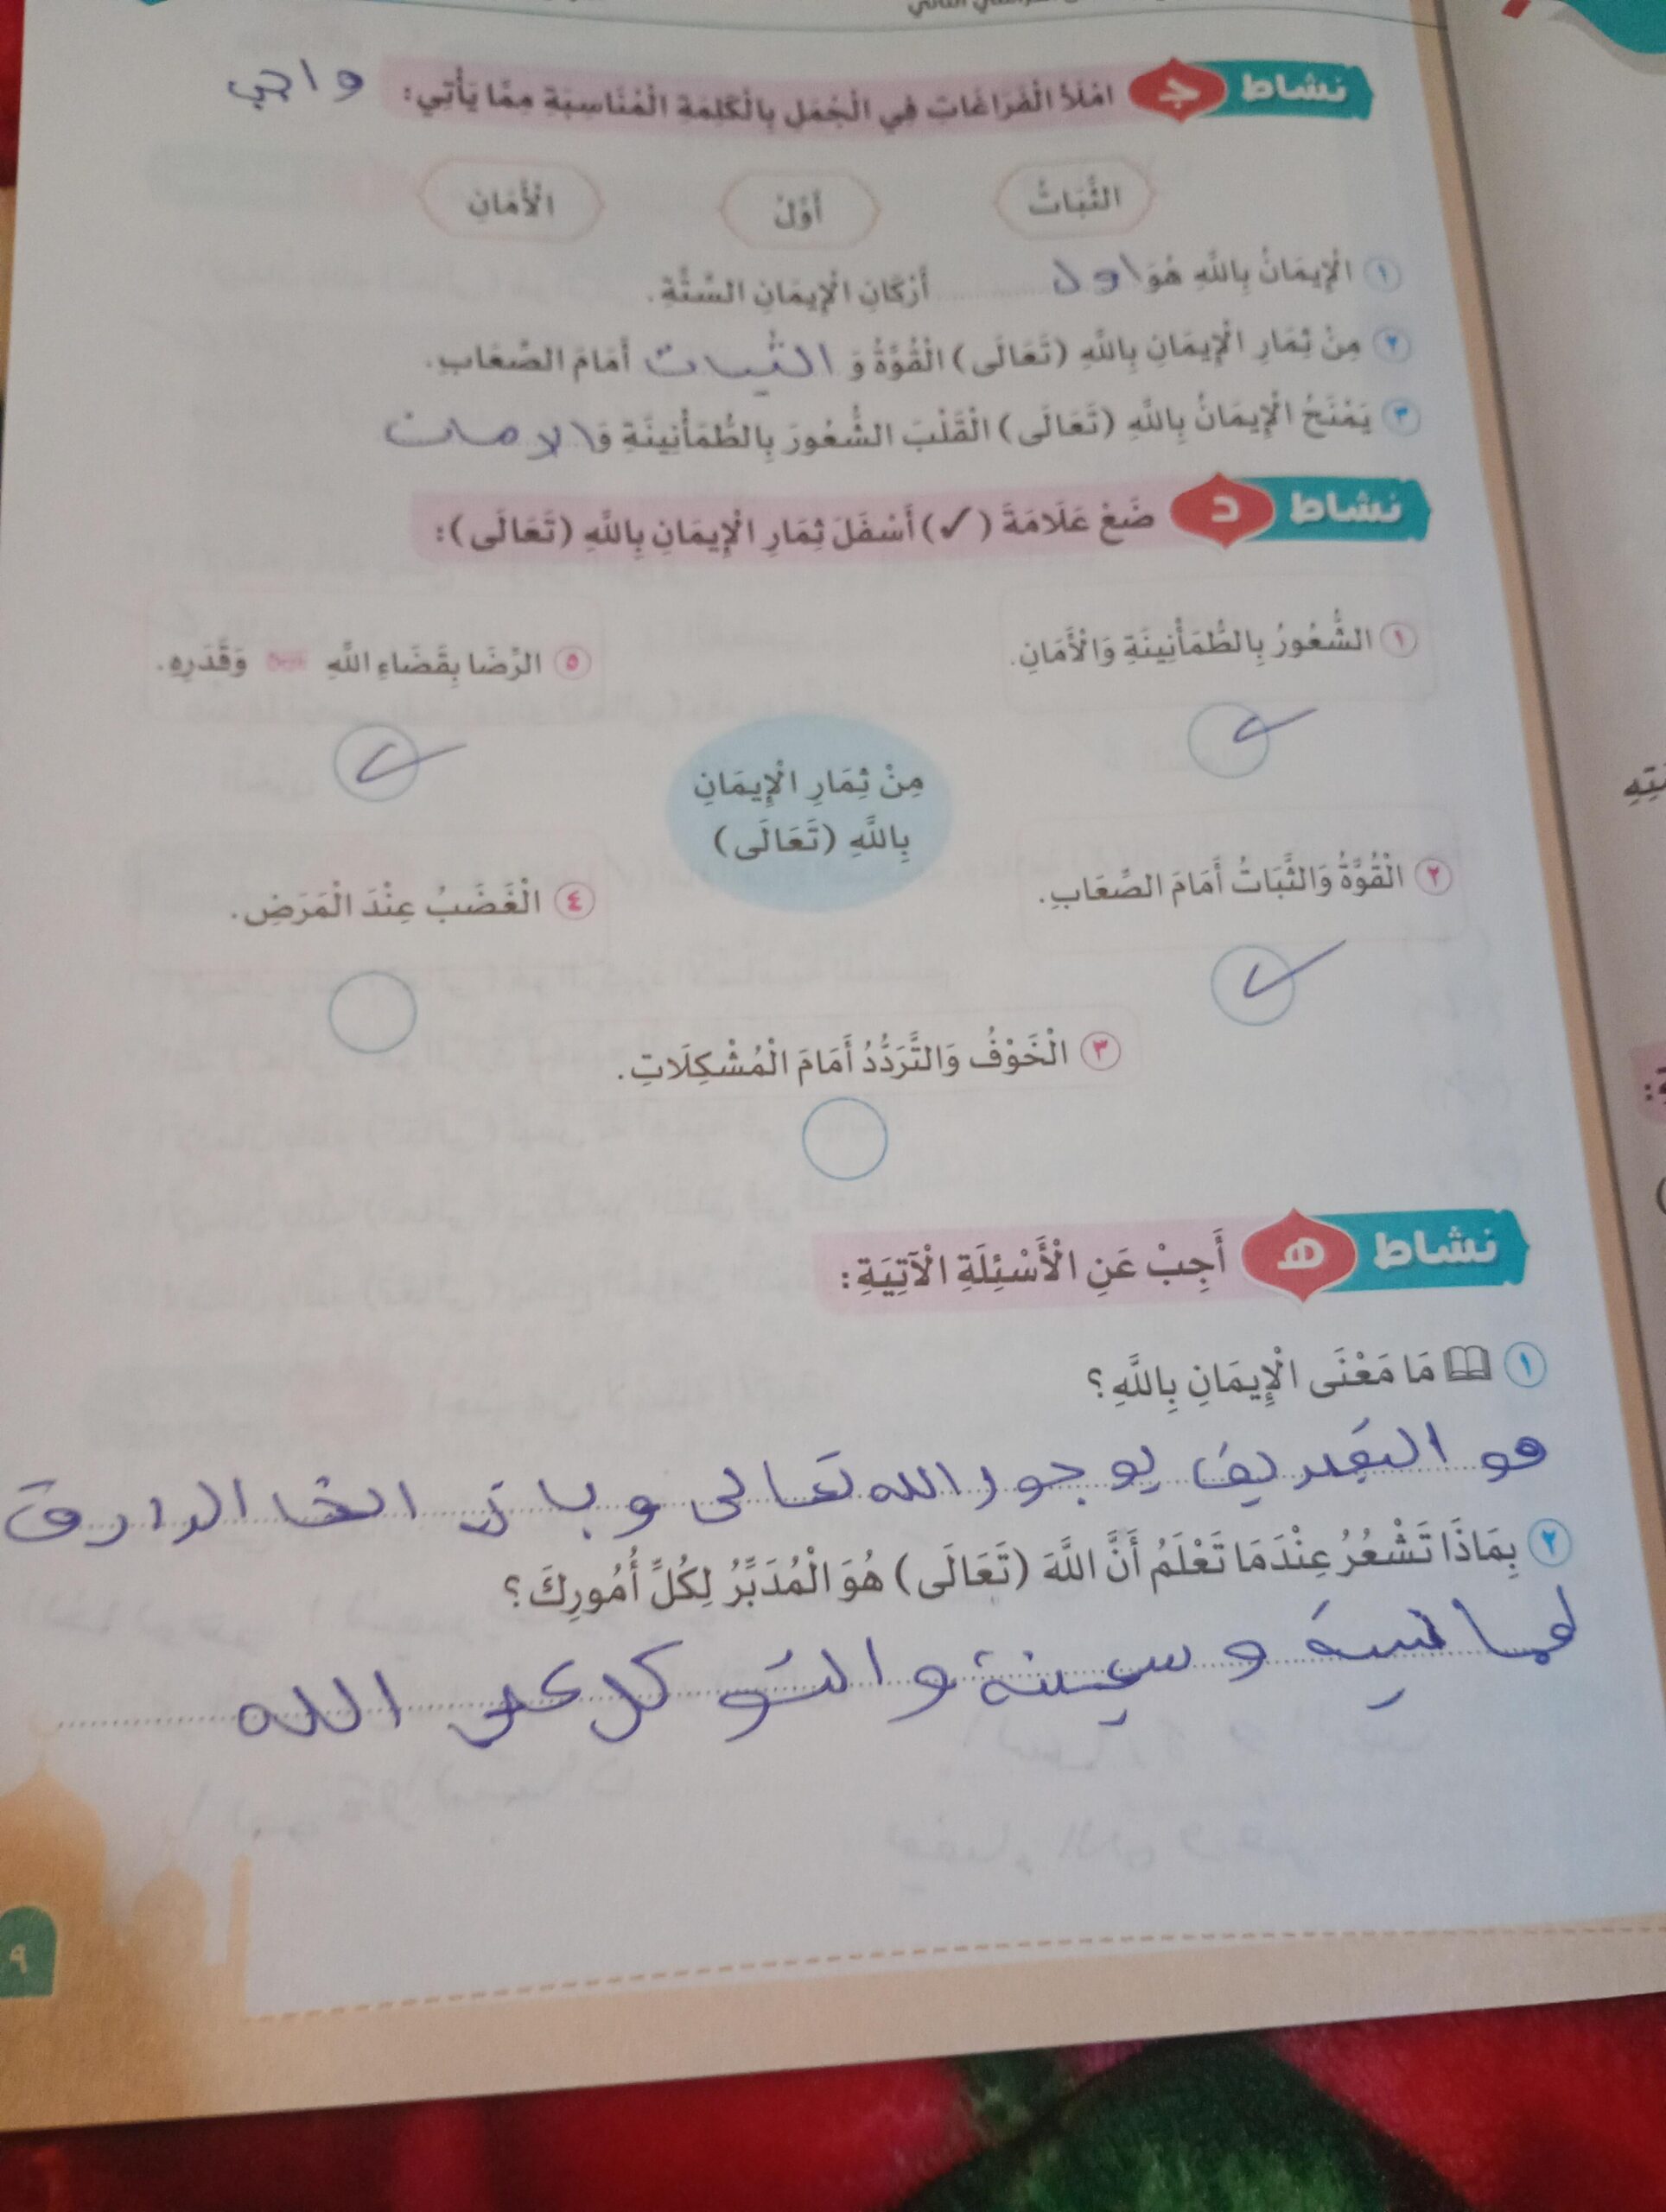 نشاط ج امْلَأِ الْفَرَاغَاتِ فِي الْجُمَلِ بِالْكَلِمَةِ الْمُنَاسِبَةِ مِمَّا يَأْتِي: واجب
الثَّبَاتُ أَوَّلُ الْأَمَانِ
١ الْإِيمَانُ بِاللَّهِ هُوَ اول أَرْكَانِ الْإِيمَانِ السِّتَّةِ.
٢ مِنْ ثِمَارِ الْإِيمَانِ بِاللَّهِ (تَعَالَى) الْقُوَّةُ وَ الثبات أَمَامَ الصِّعَابِ.
٣ يَمْنَحُ الْإِيمَانُ بِاللَّهِ (تَعَالَى) الْقَلْبَ الشُّعُورَ بِالطُّمَأْنِينَةِ وَ الامان
نشاط د ضَعْ عَلَامَةَ (✓) أَسْفَلَ ثِمَارِ الْإِيمَانِ بِاللَّهِ (تَعَالَى):
١ الشُّعُورُ بِالطُّمَأْنِينَةِ وَالْأَمَانِ.
٥ الرِّضَا بِقَضَاءِ اللَّهِ وَقَدَرِهِ.
مِنْ ثِمَارِ الْإِيمَانِ
بِاللَّهِ (تَعَالَى)
٢ الْقُوَّةُ وَالثَّبَاتُ أَمَامَ الصِّعَابِ.
٤ الْغَضَبُ عِنْدَ الْمَرَضِ.
٣ الْخَوْفُ وَالتَّرَدُّدُ أَمَامَ الْمُشْكِلَاتِ.
نشاط هـ أَجِبْ عَنِ الْأَسْئِلَةِ الْآتِيَةِ:
١ مَا مَعْنَى الْإِيمَانِ بِاللَّهِ؟
هو بوجود الله تعالى وبان
٢ بِمَاذَا تَشْعُرُ عِنْدَمَا تَعْلَمُ أَنَّ اللَّهَ (تَعَالَى) هُوَ الْمُدَبِّرُ لِكُلِّ أُمُورِكَ؟
والتوكل على الله
٩